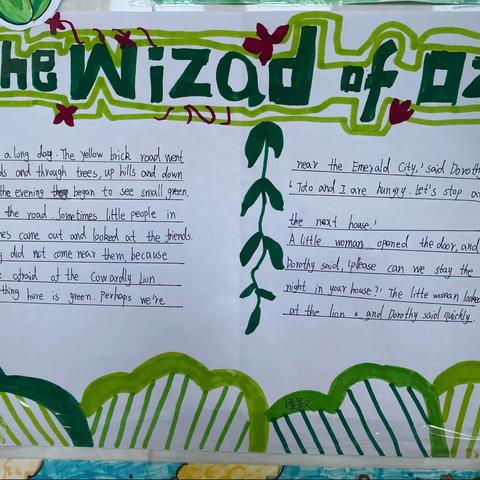 he Wizad of Oz
a long day. The yellow brick road went
ds and through trees, up hills and down
the evening they began to see small green
the road. Sometimes little people in
hes come out and looked at the friends.
y did not come near them, because
e afraid of the Cowardly Lion.
thing here is green. Perhaps we're
near the Emerald City,' said Doroth
'Toto and I are hungry. Let's stop a
the next house.'
A little woman opened the door, and
Dorothy said, 'please can we stay the
night in your house?' The little woman looked
at the lion, and Dorothy said quickly.